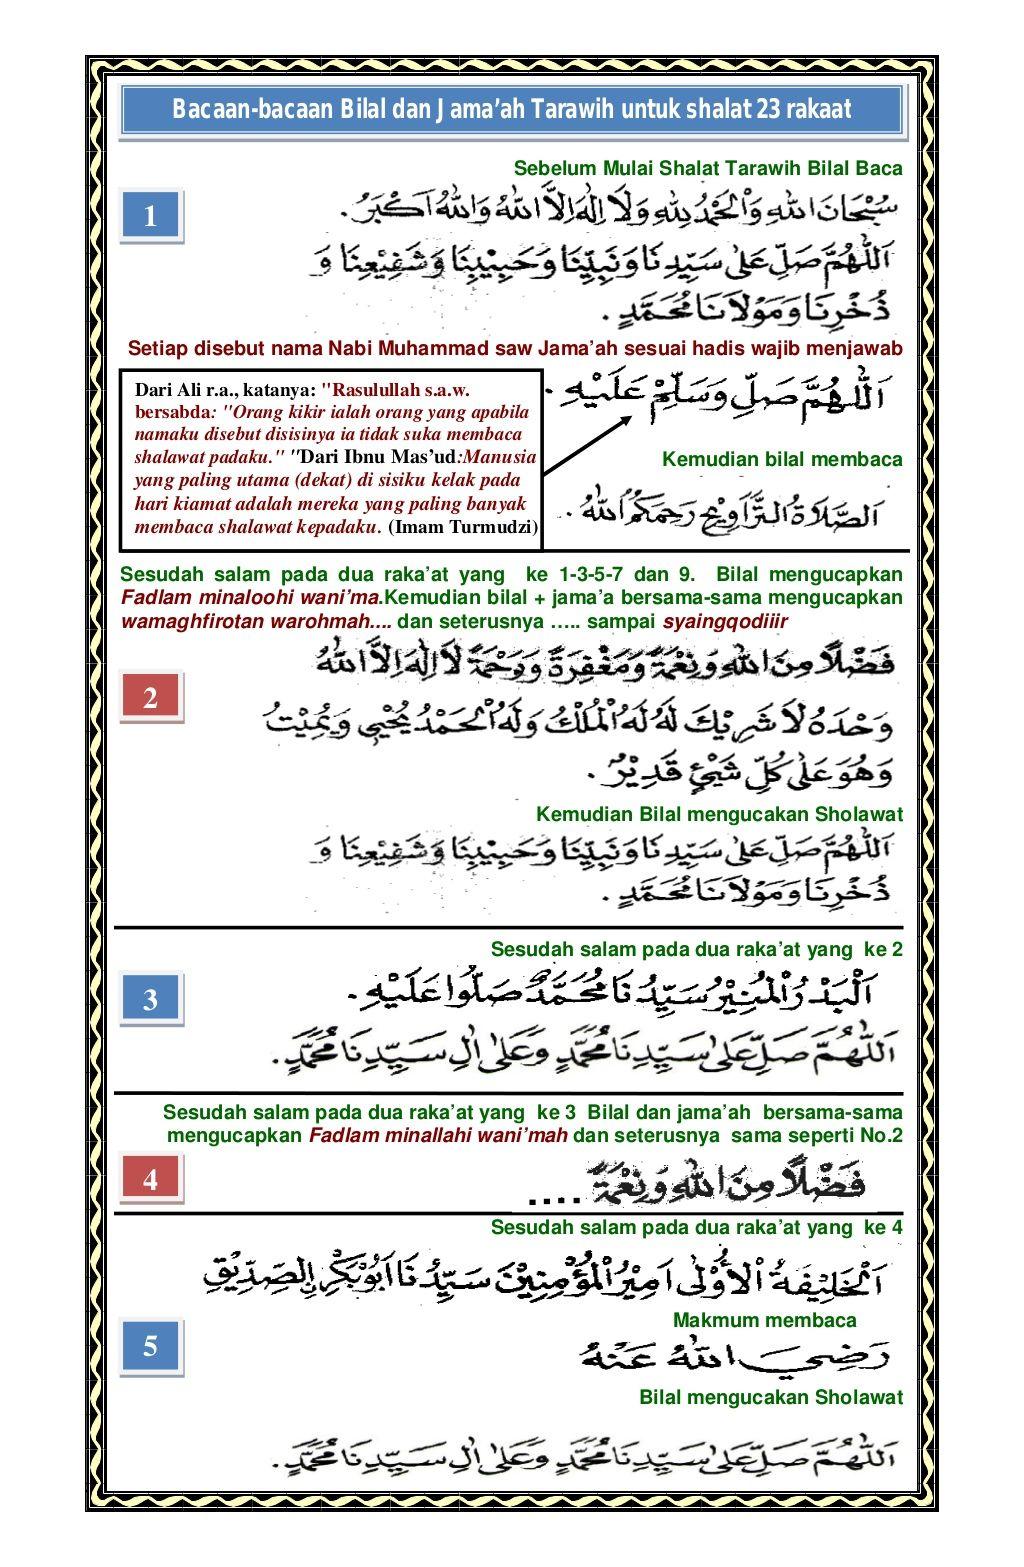 Bacaan-bacaan Bilal dan Jama’ah Tarawih untuk shalat 23 rakaat
Sebelum Mulai Shalat Tarawih Bilal Baca
1
سُبْحَانَ اللهِ وَالْحَمْدُ لِلهِ وَلَا اِلٰهَ اِلاَّ اللهُ وَاللهُ اَكْبَرُ.
اَللّٰهُمَّ صَلِّ عَلىٰ سَيِّدِنَا وَنَبِيِّنَا وَحَبِيْبِنَا وَشَفِيْعِنَا وَ
ذُخْرِنَا وَمَوْلَانَا مُحَمَّدٍ.
Setiap disebut nama Nabi Muhammad saw Jama’ah sesuai hadis wajib menjawab
اَللّٰهُمَّ صَلِّ وَسَلِّمْ عَلَيْهِ.
Dari Ali r.a., katanya: "Rasulullah s.a.w.
bersabda: "Orang kikir ialah orang yang apabila
namaku disebut disisinya ia tidak suka membaca
shalawat padaku." "Dari Ibnu Mas’ud:Manusia
yang paling utama (dekat) di sisiku kelak pada
hari kiamat adalah mereka yang paling banyak
membaca shalawat kepadaku. (Imam Turmudzi)
Kemudian bilal membaca
اَلصَّلَاةُ التَّرَاوِيْحِ رَحِمَكُمُ اللهُ.
Sesudah salam pada dua raka’at yang ke 1-3-5-7 dan 9. Bilal mengucapkan
Fadlam minaloohi wani’ma.Kemudian bilal + jama’a bersama-sama mengucapkan
wamaghfirotan warohmah.... dan seterusnya ….. sampai syaingqodiiir
2
فَضْلًا مِنَ اللهِ وَنِعْمَةً وَمَغْفِرَةً وَرَحْمَةً لَا اِلٰهَ اِلاَّ اللهُ
وَحْدَهُ لَا شَرِيْكَ لَهُ لَهُ الْمُلْكُ وَلَهُ الْحَمْدُ يُحْيِي وَيُمِيْتُ
وَهُوَ عَلىٰ كُلِّ شَيْئٍ قَدِيْرٌ.
Kemudian Bilal mengucakan Sholawat
اَللّٰهُمَّ صَلِّ عَلىٰ سَيِّدِنَا وَنَبِيِّنَا وَحَبِيْبِنَا وَشَفِيْعِنَا وَ
ذُخْرِنَا وَمَوْلَانَا مُحَمَّدٍ.
Sesudah salam pada dua raka’at yang ke 2
3
اَلْبَدْرُ الْمُنِيْرُ سَيِّدُنَا مُحَمَّدٌ صَلُّوا عَلَيْهِ.
اَللّٰهُمَّ صَلِّ عَلىٰ سَيِّدِنَا مُحَمَّدٍ وَعَلىٰ اٰلِ سَيِّدِنَا مُحَمَّدٍ.
Sesudah salam pada dua raka’at yang ke 3 Bilal dan jama’ah bersama-sama
mengucapkan Fadlam minallahi wani’mah dan seterusnya sama seperti No.2
4
فَضْلًا مِنَ اللهِ وَنِعْمَةً ....
Sesudah salam pada dua raka’at yang ke 4
اَلْخَلِيْفَةُ الْاُوْلىٰ اَمِيْرُ الْمُؤْمِنِيْنَ سَيِّدُنَا اَبُوْبَكْرٍ الصِّدِّيْقِ
Makmum membaca
5
رَضِيَ اللهُ عَنْهُ
Bilal mengucakan Sholawat
اَللّٰهُمَّ صَلِّ عَلىٰ سَيِّدِنَا مُحَمَّدٍ وَعَلىٰ اٰلِ سَيِّدِنَا مُحَمَّدٍ.